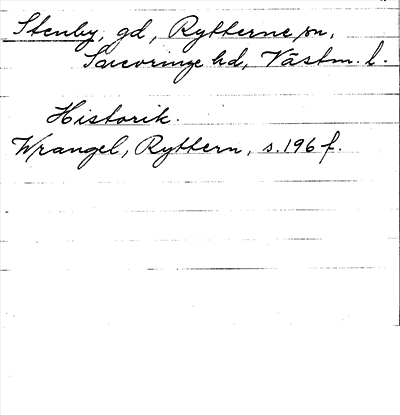 Stenby, gd, Rytterne sn,
Snevringe hd, Västm. l.
Historik.
Wrangel, Ryttern, s. 196 f.